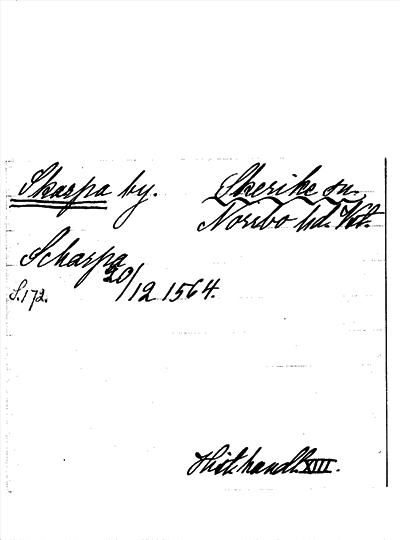 Skarpa by. Skerike sn,
Norrbo hd. Vstm.
Scharpa
20/12 1564.
S. 172.
Hist. handl. XIII.